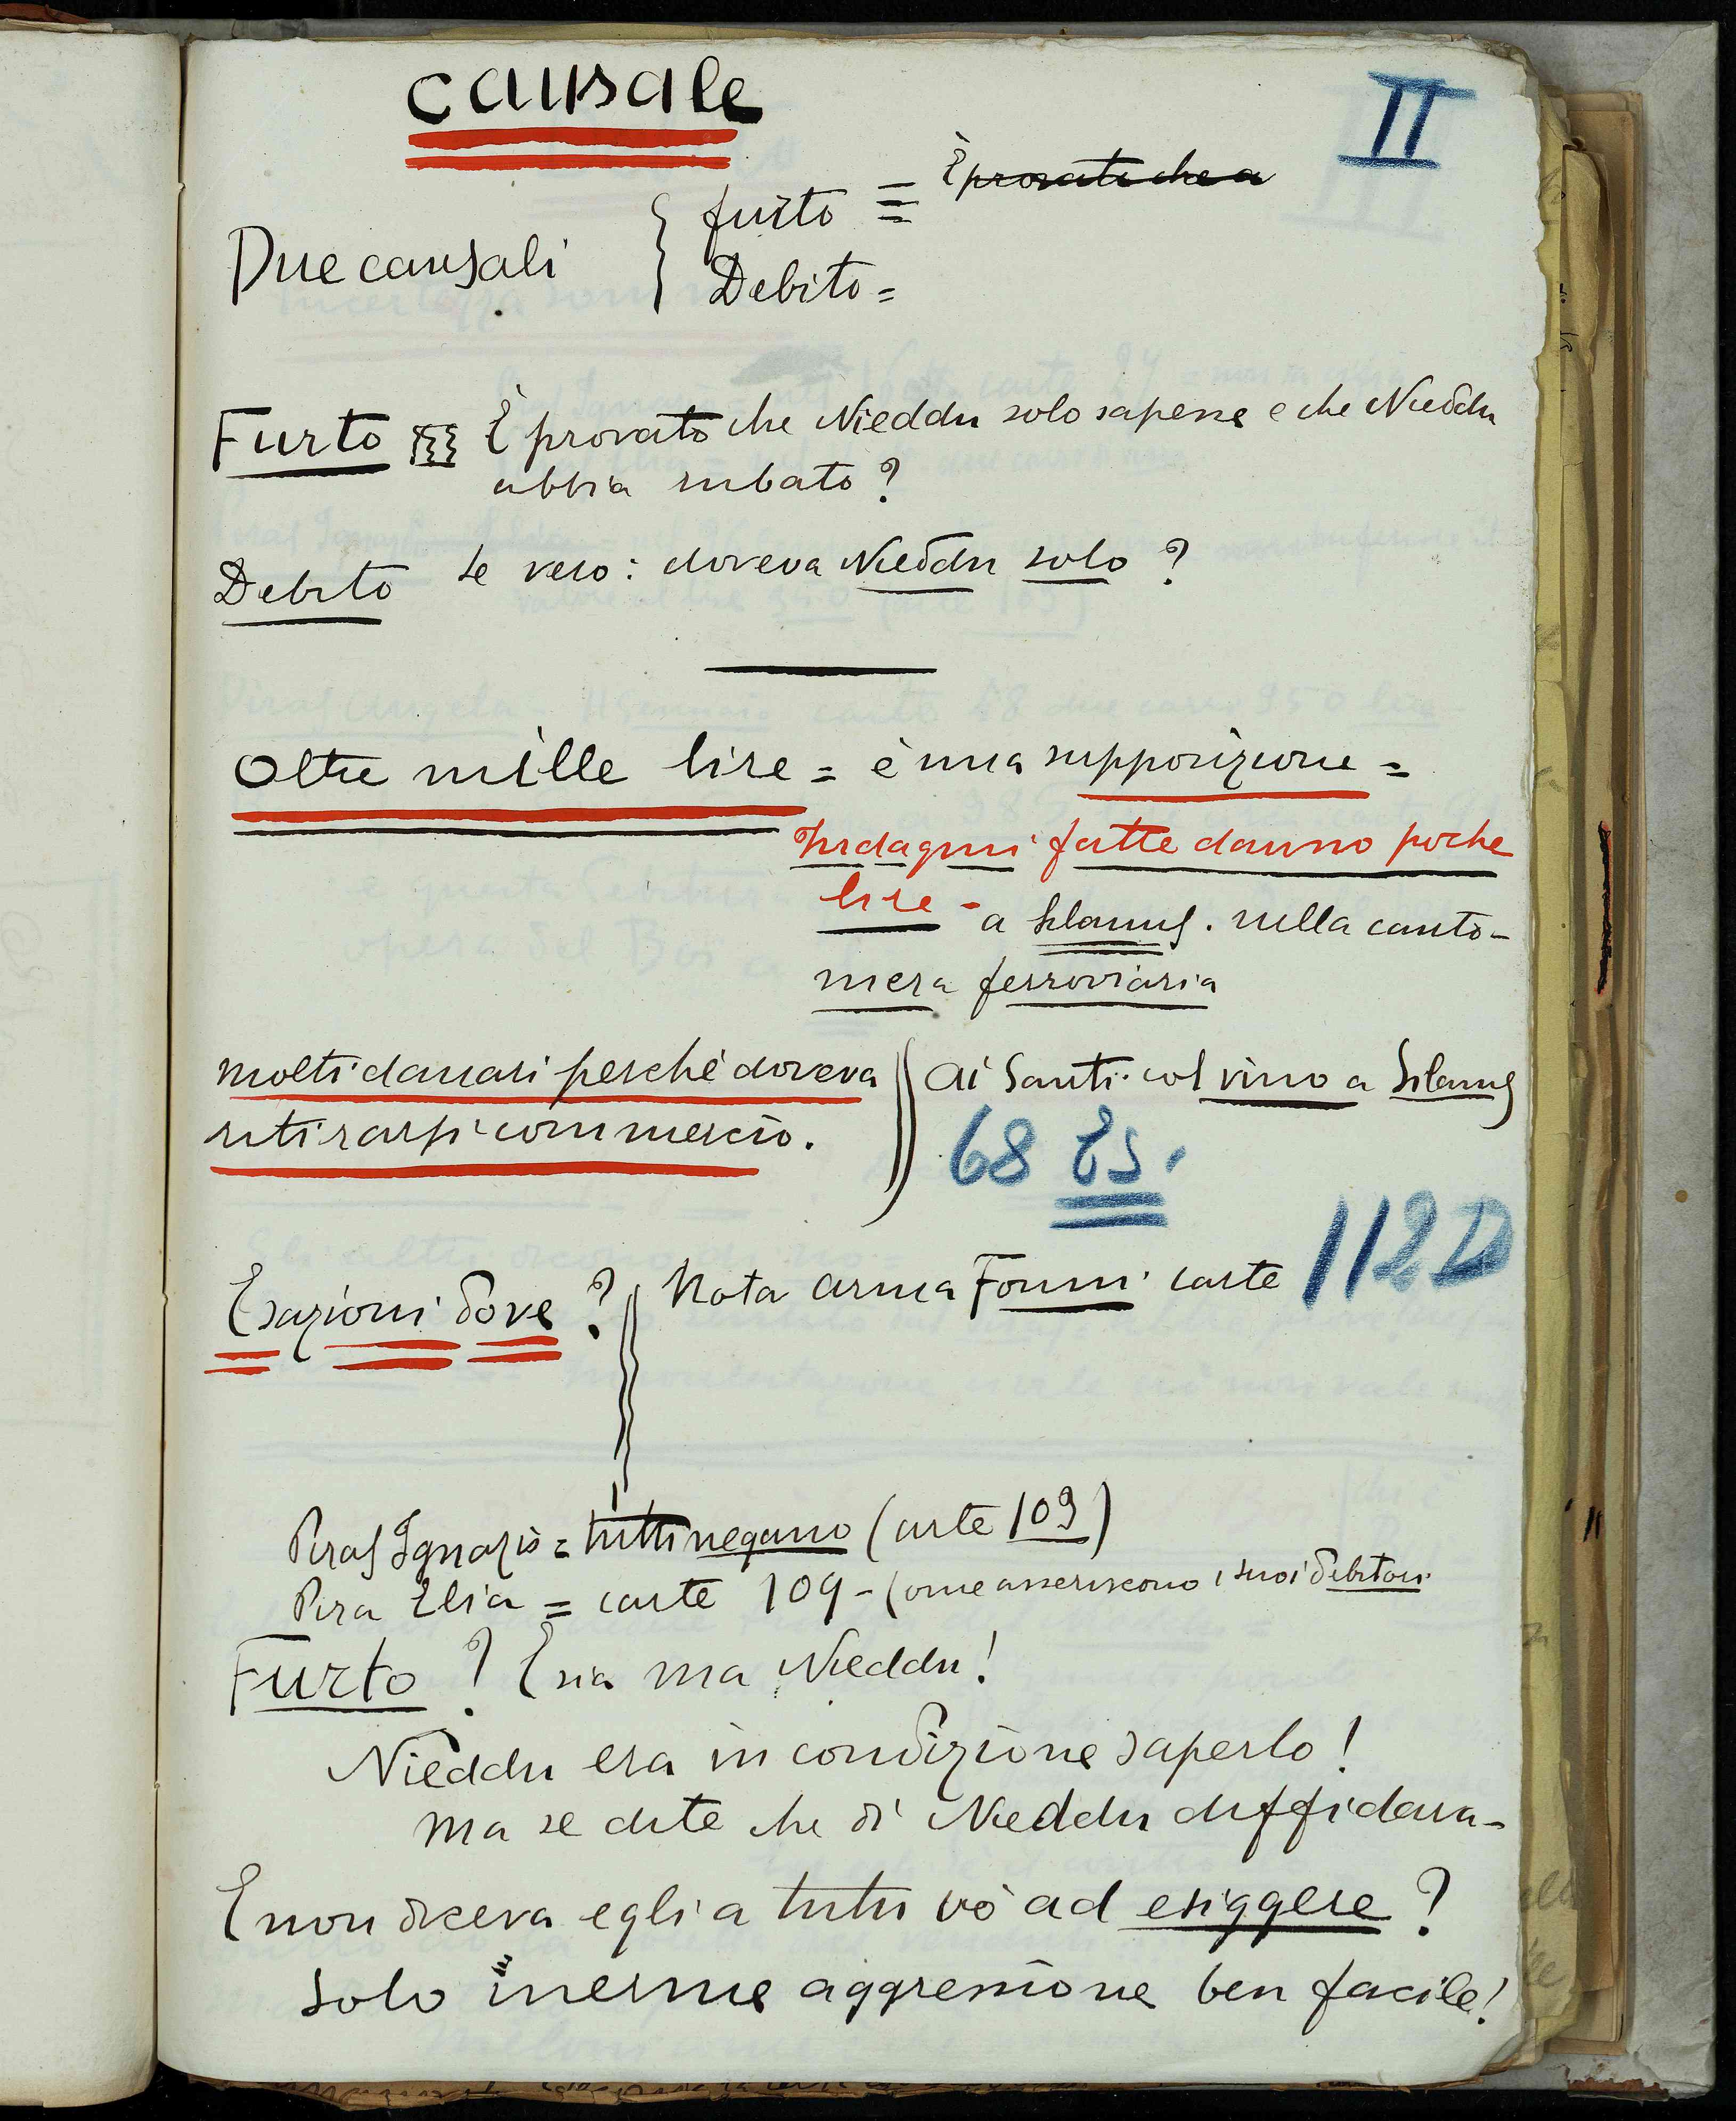 causale
II
È provato che a
furto =
Due causali
Debito =
Furto È provato che Nieddu solo sapesse e che Nieddu
abbia rubato?
Debito se vero: doveva Nieddu solo?
Oltre mille lire = è una supposizione =
Indagini fatte danno poche
lire - a Silanus. nella canto-
niera ferroviaria
molti danari perché doveva
ritirarsi commercio.
ai Santi col vino a Silanus
68
Esazioni dove?
Nota arma Fonni carte 112
Piras Ignazio = tutti negano (carte 109)
Pira Elia = carte 109 - (ome asseriscono i suoi debitori
Furto? E sia ma Nieddu!
Nieddu era in condizione saperlo!
ma se dite che di Nieddu diffidava -
E non diceva egli a tutti vò ad esiggere?
solo inerme aggressione ben facile!